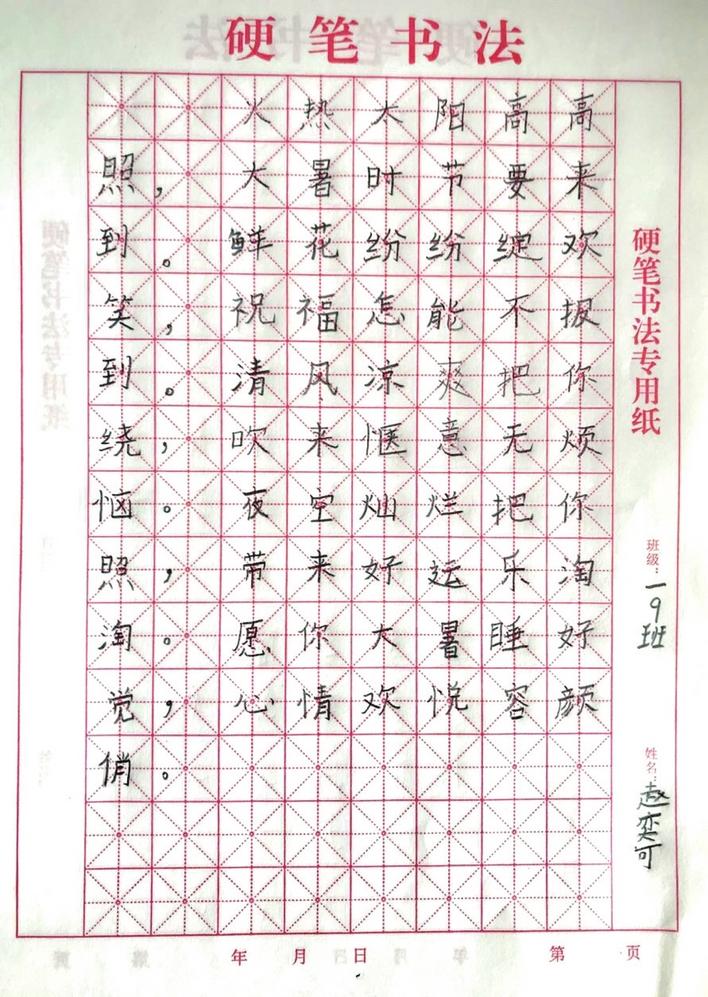 硬笔书法
火热太阳高高
照，大暑时节要来
到。鲜花纷纷绽欢
笑，祝福怎能不报
到。清风凉爽把你
绕，吹来惬意无烦
恼。夜空灿烂把你
照，带来好运乐淘
淘。愿你大暑睡好
觉，心情欢悦容颜
俏。
年 月 日 第 页
硬笔书法专用纸
班级：一9班
姓名：赵奕可